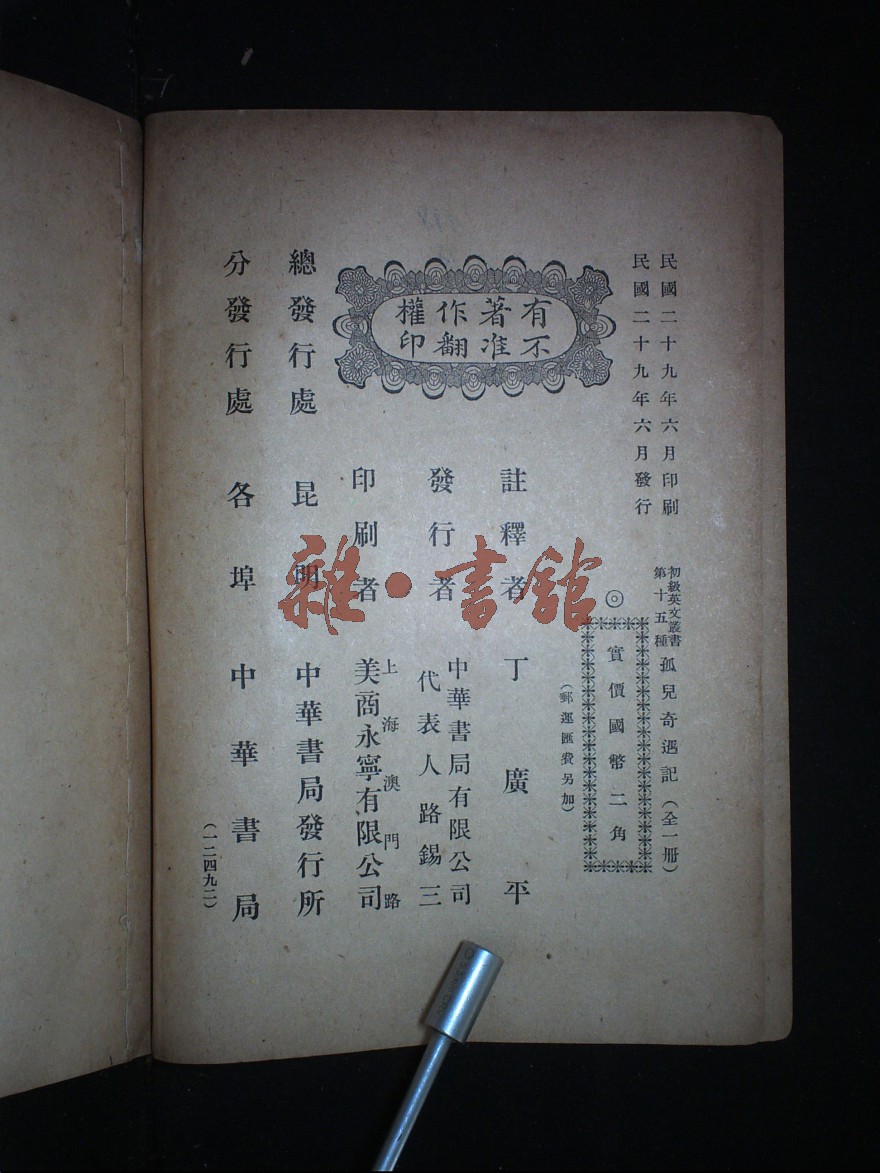 民國二十九年六月印刷
民國二十九年六月發行
初級英文叢書
第十五種
孤兒奇遇記（全一册）
◎
實價國幣二角
（郵運匯費另加）
有著作權
不准翻印
註釋者 丁廣平
發行者 中華書局有限公司
代表人路錫三
印刷者 上海澳門路
美商永寧有限公司
總發行處 昆明 中華書局發行所
分發行處 各埠 中華書局
（一二四九二）
雜·書館